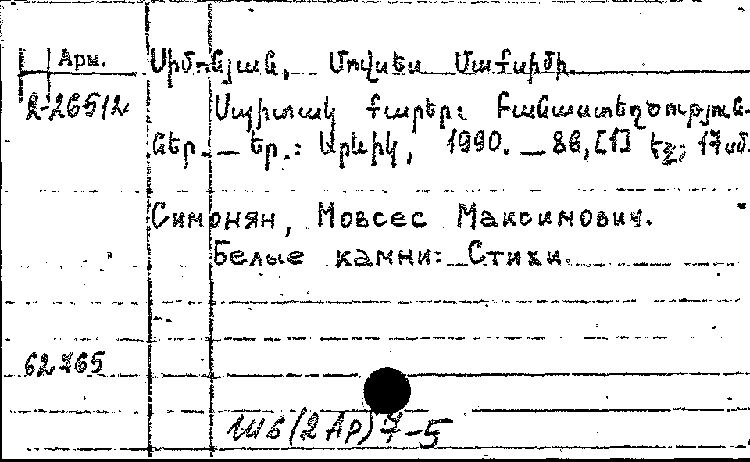 Арм. Սիմոնյան, Մովսես Մաքսիմի.
2-26512 Սպիտակ քարեր: Բանաստեղծություն-
ներ. _ Եր.: Արևիկ, 1990. _ 86,[1] էջ; 17սմ.
Симонян, Мовсес Максимович.
Белые камни: Стихи.
62765
Ш6(2Ар)7-5